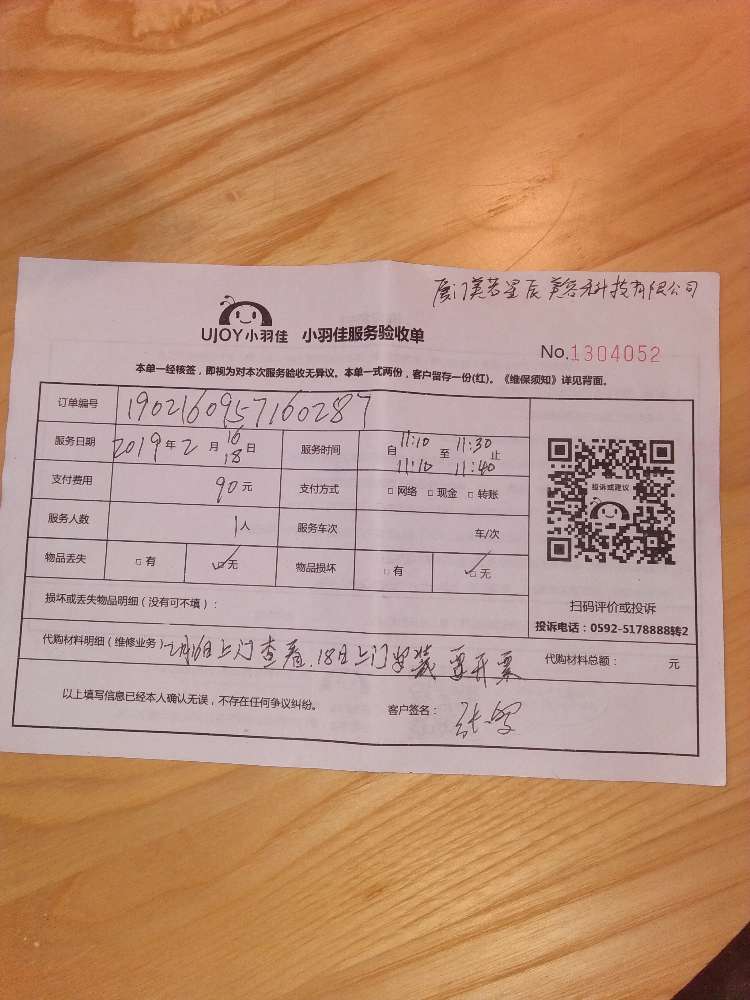 厦门美若星辰美容科技有限公司
UJOY小羽佳 小羽佳服务验收单
No.1304052
本单一经核签，即视为对本次服务验收无异议。本单一式两份，客户留存一份(红)。《维保须知》详见背面。
订单编号 190216095716028​7
服务日期 2019年2月16 18日 服务时间 自11:10至11:30止 11:10 11:40
支付费用 90元 支付方式 □网络 □现金 □转账
服务人数 1人 服务车次 车/次
物品丢失 □有 ✓□无 物品损坏 □有 ✓□无
投诉或建议
扫码评价或投诉
投诉电话：0592-5178888转2
损坏或丢失物品明细（没有可不填）：
代购材料明细（维修业务） 2月16日上门查看，18日上门安装 要开票 代购材料总额： 元
以上填写信息已经本人确认无误，不存在任何争议纠纷。 客户签名：